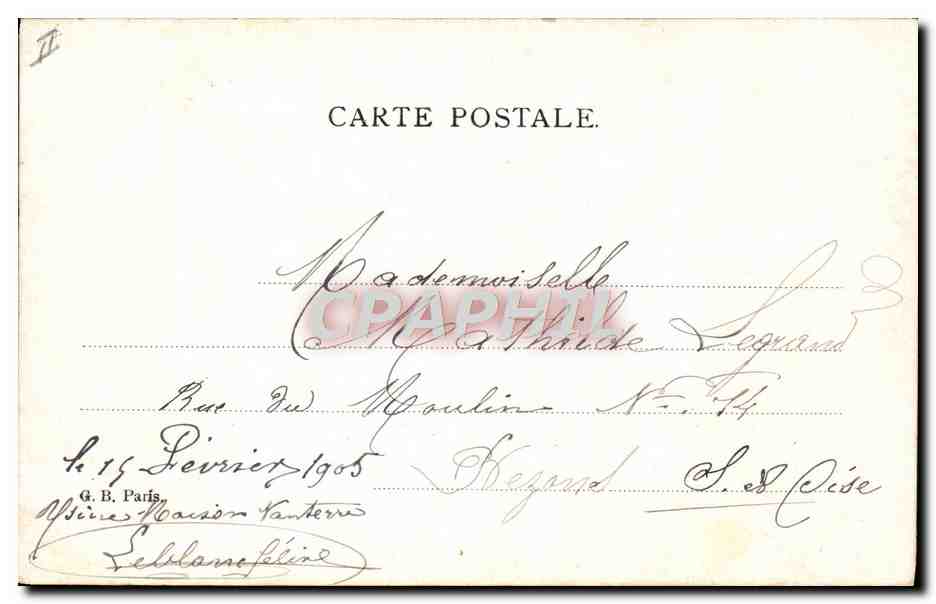 II
CARTE POSTALE.
Mademoiselle
CPAPHIL
Mathilde Legrand
Rue du Moulin No. 14
le 15 Février 1905
S. et Oise
G. B. Paris.
Usine Maison Nanterre